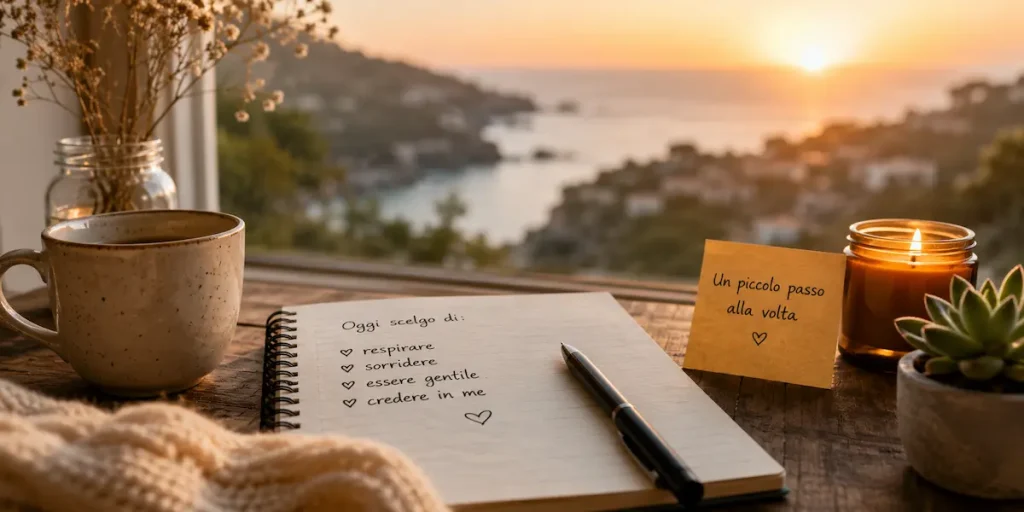 Oggi scelgo di:
♡ respirare
♡ sorridere
♡ essere gentile
♡ credere in me
♡
Un piccolo passo
alla volta
♡